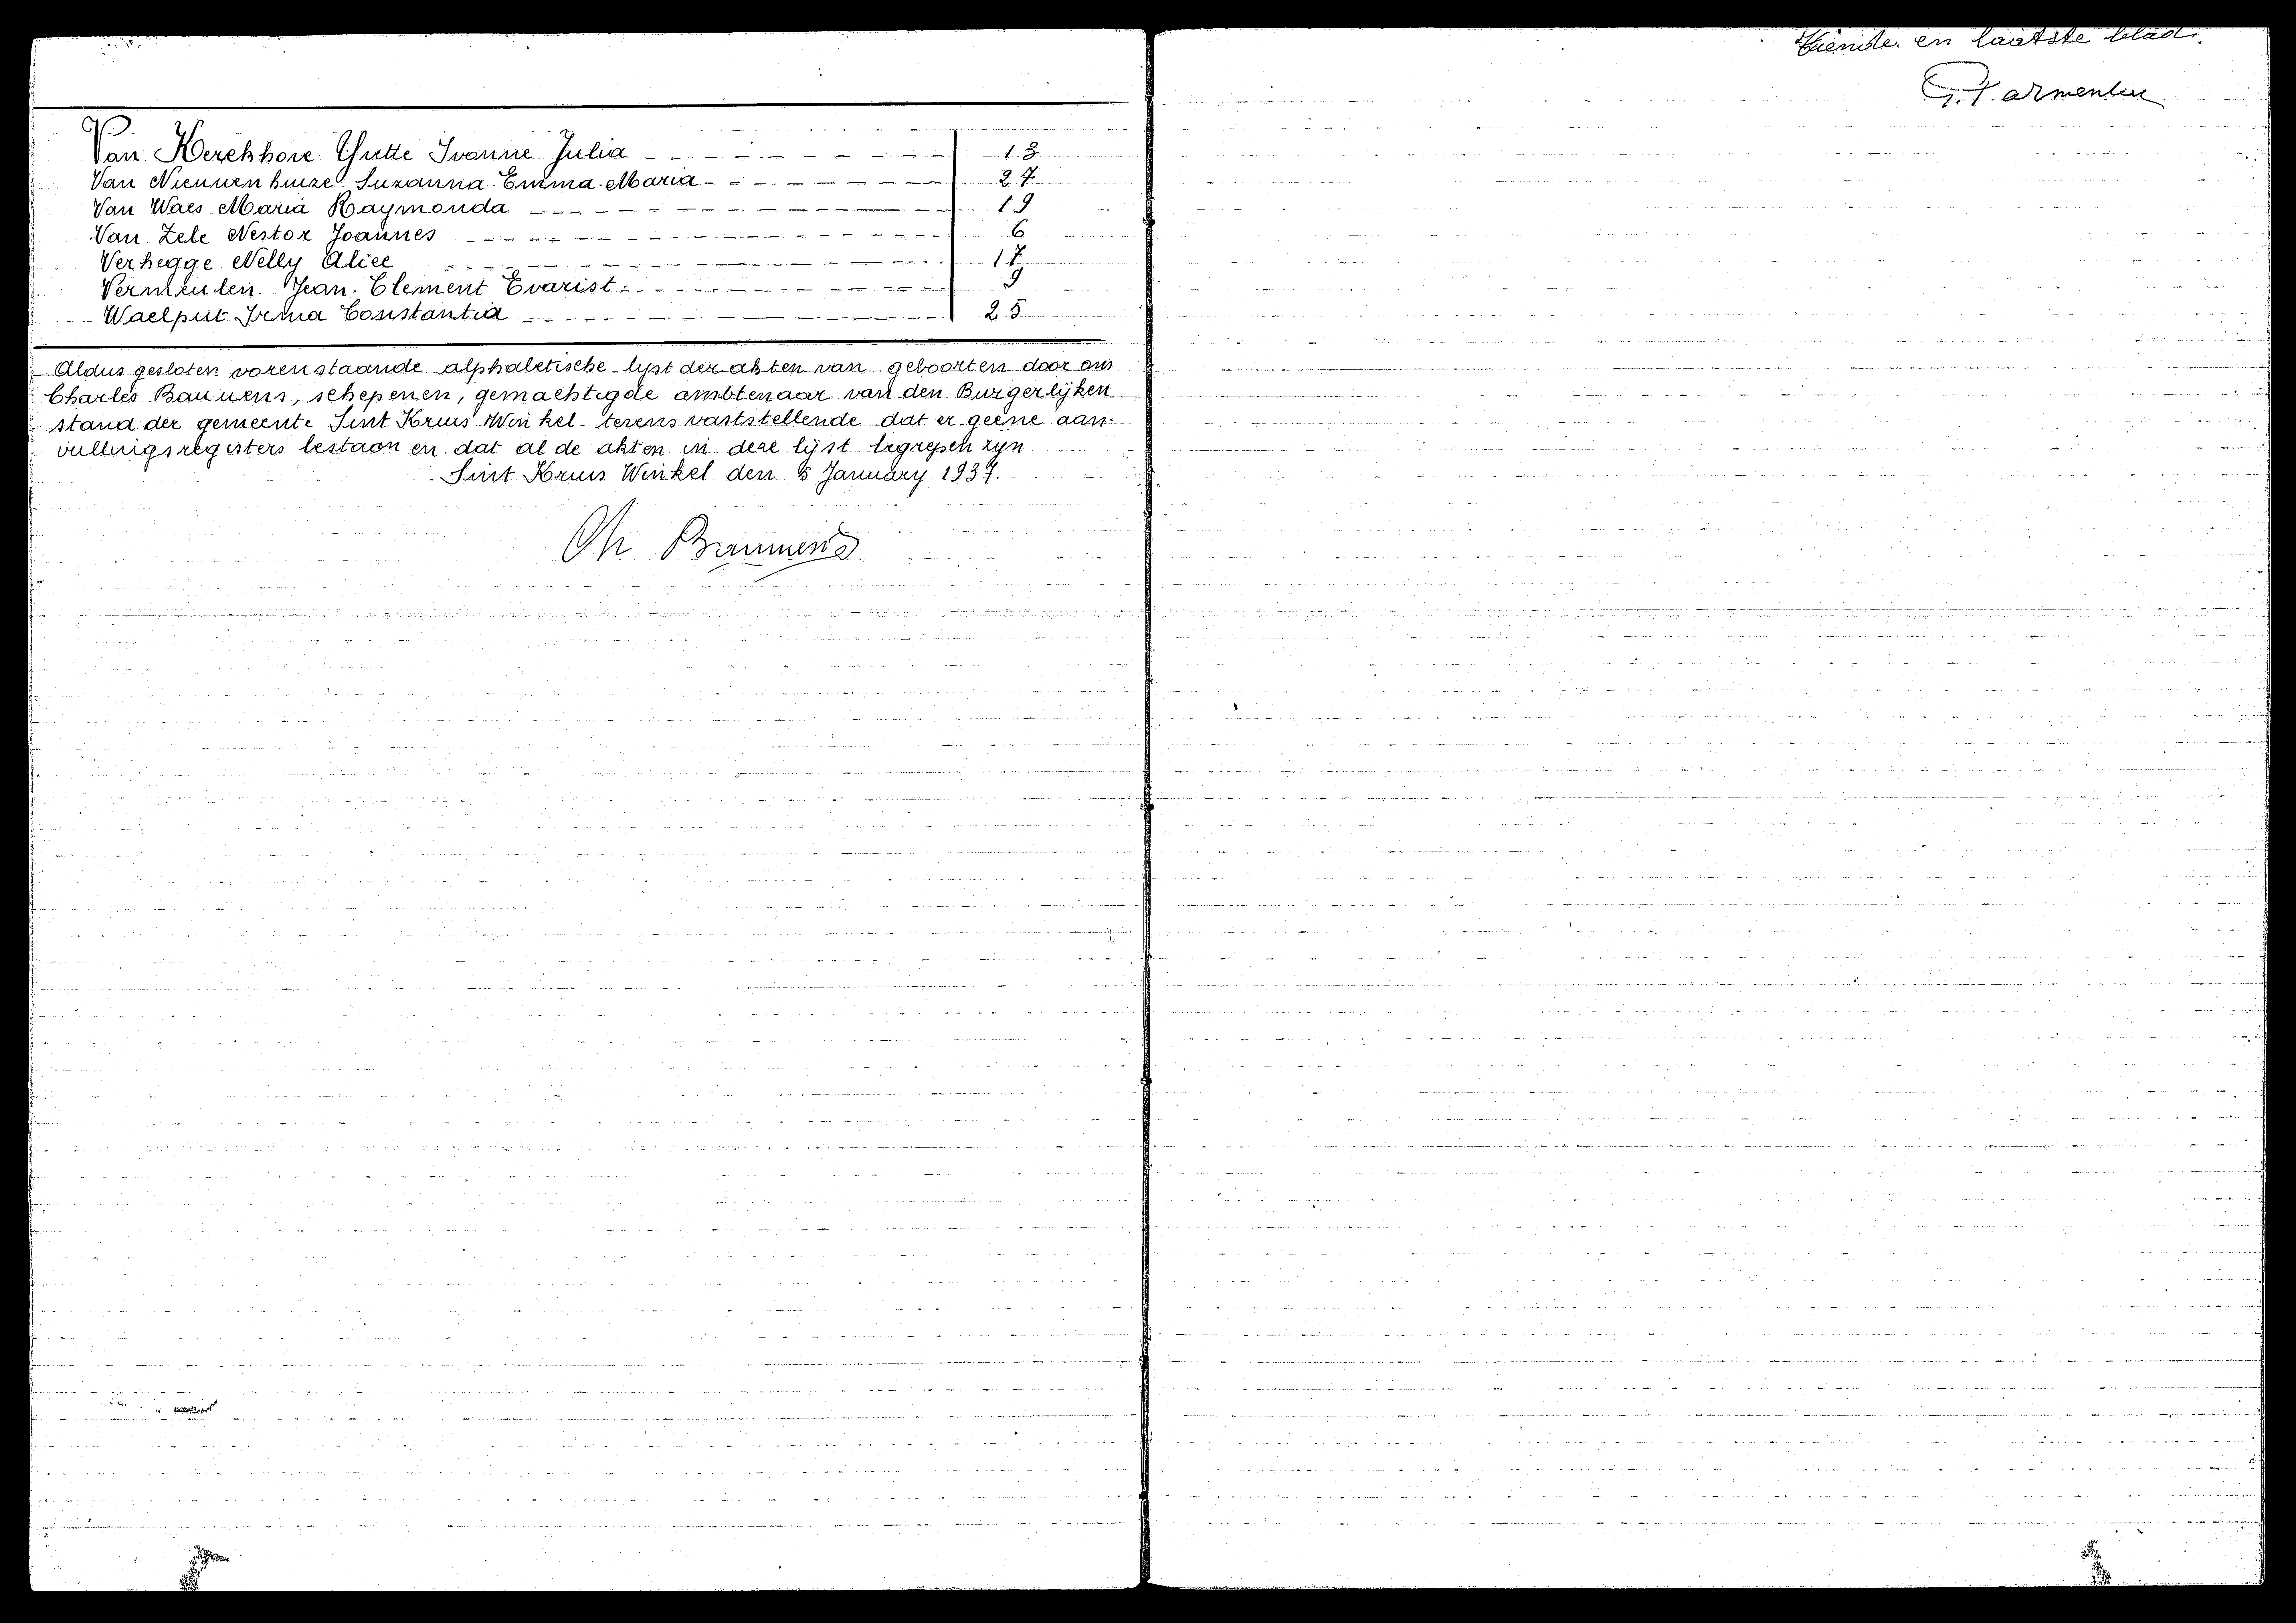 Van Kerckhove Yvette Ivonne Julia 13
Van Nieuwenhuize Suzanna Emma Maria 27
Van Waes Maria Raymonda 19
Van Zele Nestor Joannes 6
Verhegge Nelly Alice 17
Vermeulen Jean Clement Evarist 9
Waelput Irma Constantia 25
Aldus gesloten vorenstaande alphabetische lijst der akten van geboorten door ons
Charles Bauwens, schepenen, gemachtigde ambtenaar van den Burgerlijken
stand der gemeente Sint Kruis Winkel tevens vaststellende dat er geene aan-
vullingsregisters bestaan en dat al de akten in deze lijst begrepen zijn
Sint Kruis Winkel den 5 January 1937.
Ch Bauwens
en laatste blad.